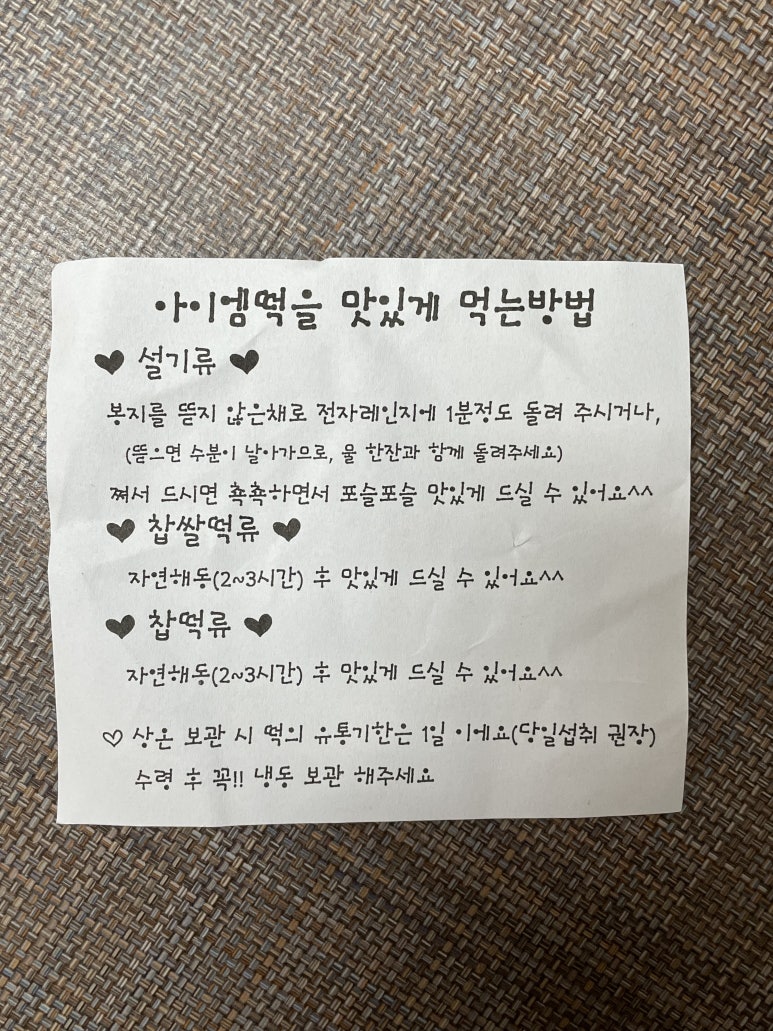 아이엠떡을 맛있게 먹는방법
♥ 설기류 ♥
봉지를 뜯지 않은채로 전자레인지에 1분정도 돌려 주시거나,
(뜯으면 수분이 날아가므로, 물 한잔과 함께 돌려주세요)
쪄서 드시면 쵹쵹하면서 포슬포슬 맛있게 드실 수 있어요^^
♥ 찹쌀떡류 ♥
자연해동(2~3시간) 후 맛있게 드실 수 있어요^^
♥ 찹떡류 ♥
자연해동(2~3시간) 후 맛있게 드실 수 있어요^^
♡ 상온 보관 시 떡의 유통기한은 1일 이에요(당일섭취 권장)
수령 후 꼭!! 냉동 보관 해주세요